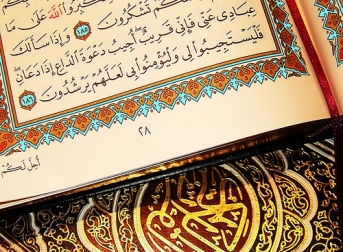 ٱللَّهَ عَلَىٰ مَا
تَشْكُرُونَ ١٨٥ وَإِذَا سَأَلَكَ
عِبَادِي عَنِّي فَإِنِّي قَرِيبٌ أُجِيبُ دَعْوَةَ ٱلدَّاعِ إِذَا دَعَانِ
فَلْيَسْتَجِيبُوا۟ لِي وَلْيُؤْمِنُوا۟ بِي لَعَلَّهُمْ يَرْشُدُونَ ١٨٦
٢٨
أُحِلَّ لَكُمْ